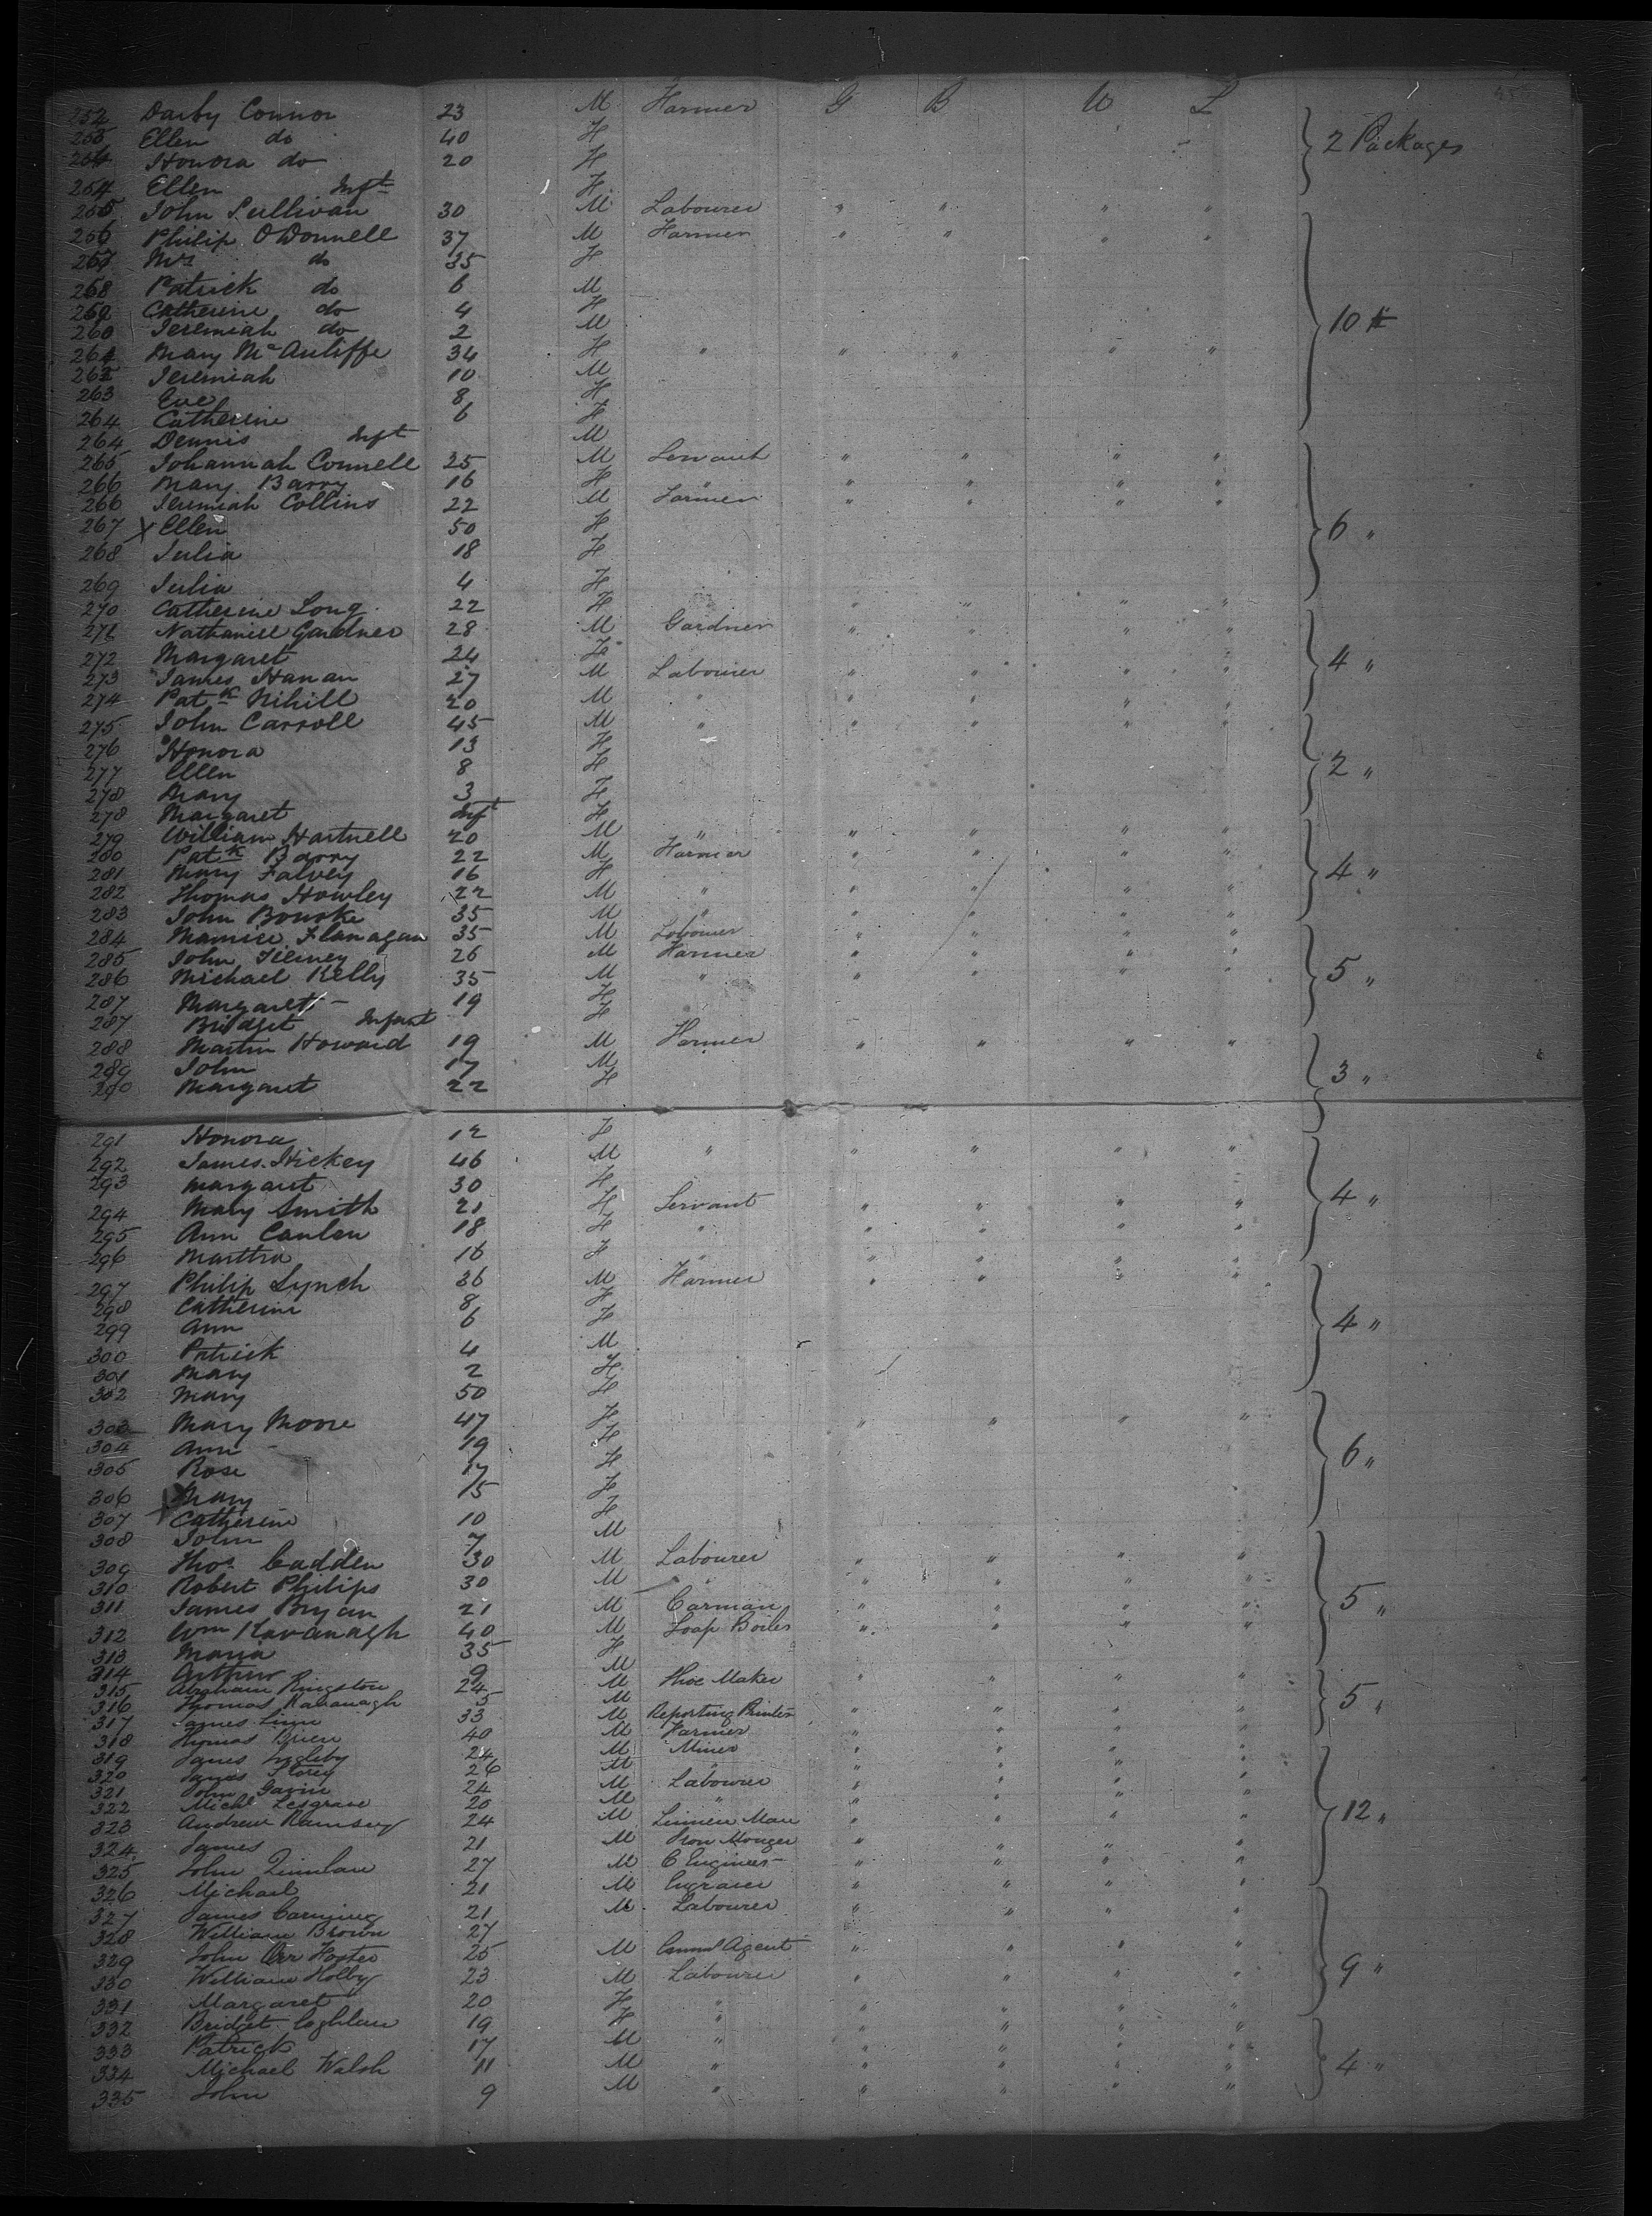 252 Darby Connor 23 M Farmer G B U S
253 Ellen do 40 F 2 Packages
254 Honora do 20 F
254 Ellen Inft F
255 John Sullivan 30 M Labourer " " " "
256 Philip ODonnell 37 M Farmer " " " "
257 Mrs do 35 F
258 Patrick do 6 M
259 Catherine do 4 F
260 Jeremiah do 2 M 10
261 Mary McAuliffe 34 F " " " " "
262 Jeremiah 10 M
263 Eve 8 F
264 Catherine 6 F
264 Dennis Inft M
265 Johannah Connell 25 M Servant " " " "
266 Mary Barry 16 F " " " " "
266 Jeremiah Collins 22 M Farmer " " " "
267 X Ellen 50 F 6 "
268 Julia 18 F
269 Julia 4 F
270 Catherine Long 22 F " " " "
271 Nathaniell Gardner 28 M Gardner " " " "
272 Margaret 24 F 4 "
273 James Hanan 27 M Labourer " " " "
274 Patk Nihill 20 M " " " " "
275 John Carroll 45 M " " " " "
276 Honora 13 F
277 Ellen 8 F 2 "
278 Mary 3 F
278 Margaret Inft F
279 William Hartnell 20 M " " " " "
280 Patk Barry 22 M Farmer " " " "
281 Mary Falvey 16 F 4 "
282 Thomas Howley 22 M " " " " "
283 John Bourke 35 M " " " " "
284 Maurice Flanagan 35 M Labourer " " " "
285 John Tierney 26 M Farmer " " " "
286 Michael Kelly 35 M " " " " " 5 "
287 Margaret 19 F
287 Bridget Infant F
288 Martin Howard 19 M Farmer " " " "
289 John 17 M 3 "
290 Margaret 22 F
291 Honora 12 F
292 James Hickey 46 M " " " " "
293 Margaret 30 F 4 "
294 Mary Smith 21 F Servant " " " "
295 Ann Canlon 18 F " " " " "
296 Martha 16 F " " " " "
297 Philip Lynch 36 M Farmer " " " "
298 Catherine 8 F
299 Ann 6 F 4 "
300 Patrick 4 M
301 Mary 2 F
302 Mary 50 F
303 Mary Moore 47 F " " " "
304 Ann 19 F 6 "
305 Rose 17 F
306 Mary 15 F
307 X Catherine 10 F
308 John 7 M
309 Thos Cadden 30 M Labourer " " " "
310 Robert Philips 30 M " " " " "
311 James Bryan 21 M Carman " " " " 5 "
312 Wm Kavanagh 40 M Soap Boiler " " " "
313 Maria 35 F
314 Arthur 9 M
315 Abraham Kingston 24 M Shoe Maker " " " "
316 Thomas Kavanagh 5 M 5 "
317 James Linn 33 M Reporting Printer " " " "
318 Thomas Brien 40 M Farmer " " " "
319 James Ingleby 24 M Miner " " " "
320 James Storey 26 M " " " " "
321 John Gavin 24 M Labourer " " " "
322 Michl 20 M " " " " "
323 Andrew Ramsey 24 M Linnen Man " " " " 12 "
324 James 21 M Iron Monger " " " "
325 John Quinlan 27 M C Engineer " " " "
326 Michael 21 M Engraver " " " "
327 James Canning 21 M Labourer " " " "
328 William Brown 27
329 John Orr 25 M Comml Agent " " " "
330 William Holby 23 M Labourer " " " " 9 "
331 Margaret 20 F " " " " "
332 Bridget Coghlan 19 F " " " " "
333 Patrick 17 M " " " " "
334 Michael Walsh 11 M " " " " " 4 "
335 John 9 M " " " " "